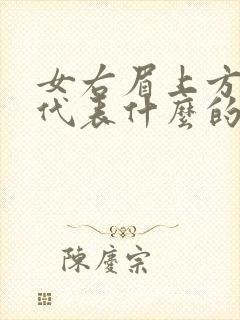 女右眉上方
代表什麼的
陳慶宗